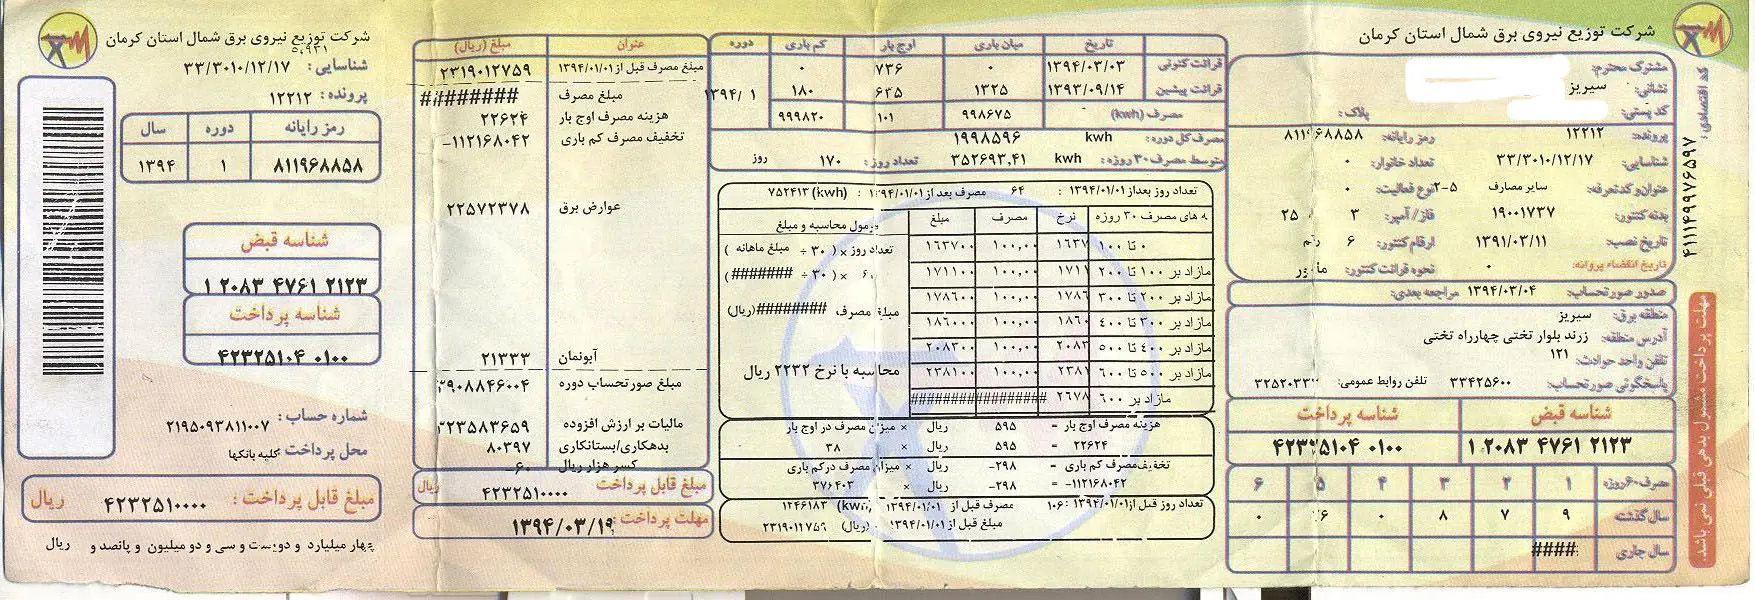 شرکت توزیع نیروی برق شمال استان کرمان
مشترک محترم:
نشانی: سیریز
کد پستی:
پلاک:
پرونده: ۱۲۲۱۲
رمز رایانه: ۸۱۱۹۶۸۸۵۸
شناسایی: ۳۳/۳۰۱۰/۱۲/۱۷
تعداد خانوار: ۰
عنوان و کد تعرفه: سایر مصارف ۲-۵
نوع فعالیت: ۰
بدنه کنتور: ۱۹۰۰۱۷۳۷
فاز/آمپر: ۳ ۲۵
تاریخ نصب: ۱۳۹۱/۰۳/۱۱
ارقام کنتور: ۶ رقم
تاریخ انقضاء پروانه: ۰
نحوه قرائت کنتور: مامور
صدور صورتحساب: ۱۳۹۴/۰۳/۰۴ مراجعه بعدی:
منطقه برق: سیریز
آدرس منطقه: زرند بلوار تختی چهارراه تختی
تلفن واحد حوادث: ۱۲۱
پاسخگوئی صورتحساب: ۳۳۴۲۵۶۰۰ تلفن روابط عمومی:
شناسه قبض شناسه پرداخت
۱ ۲۰۸۳ ۴۷۶۱ ۲۱۲۳ ۴۲۳۲۵۱۰۴ ۰۱۰۰
مصرف ۶۰ روزه ۱ ۲ ۳ ۴ ۵ ۶
سال گذشته ۹ ۷ ۸ ۰ ۰
سال جاری ####
کد اقتصادی: ۴۱۱۱۴۹۹۷۶۵۹۷
مهلت پرداخت مشمول بدهی قبلی نمی باشد.
تاریخ میان باری اوج بار کم باری دوره
قرائت کنونی ۱۳۹۴/۰۳/۰۳ ۰ ۷۳۶ ۰
قرائت پیشین ۱۳۹۳/۰۹/۱۴ ۱۳۲۵ ۶۳۵ ۱۸۰ ۱۳۹۴/ ۱
مصرف (kwh) ۹۹۸۶۷۵ ۱۰۱ ۹۹۹۸۲۰
مصرف کل دوره: kwh ۱۹۹۸۵۹۶
متوسط مصرف ۳۰ روزه: kwh ۳۵۲۶۹۳,۴۱ تعداد روز: ۱۷۰ روز
تعداد روز بعداز ۱۳۹۴/۰۱/۰۱ : ۶۴ مصرف بعد از ۱۳۹۴/۰۱/۰۱ : ۷۵۲۴۱۳ (kwh)
پله های مصرف ۳۰ روزه نرخ مصرف مبلغ فرمول محاسبه و مبلغ
۰ تا ۱۰۰ ۱۶۳۷ ۱۰۰,۰۰ ۱۶۳۷۰۰
مازاد بر ۱۰۰ تا ۲۰۰ ۱۷۱۱ ۱۰۰,۰۰ ۱۷۱۱۰۰
مازاد بر ۲۰۰ تا ۳۰۰ ۱۷۸۶ ۱۰۰,۰۰ ۱۷۸۶۰۰
مازاد بر ۳۰۰ تا ۴۰۰ ۱۸۶۰ ۱۰۰,۰۰ ۱۸۶۰۰۰
مازاد بر ۴۰۰ تا ۵۰۰ ۲۰۸۳ ۱۰۰,۰۰ ۲۰۸۳۰۰
مازاد بر ۵۰۰ تا ۶۰۰ ۲۳۸۱ ۱۰۰,۰۰ ۲۳۸۱۰۰
مازاد بر ۶۰۰ ۲۶۷۸ ##################
تعداد روز × ( ۳۰ ÷ مبلغ ماهانه )
× ( ۳۰ ÷ ####### )
مبلغ مصرف #########(ریال)
محاسبه با نرخ ۲۲۳۲ ریال
هزینه مصرف اوج بار = ۵۹۵ ریال × میزان مصرف در اوج بار
۲۲۶۲۴ = ۵۹۵ ریال × ۳۸
تخفیف مصرف کم باری = ۲۹۸- ریال × میزان مصرف در کم باری
۱۱۲۱۶۸۰۴۲- = ۲۹۸- ریال × ۳۷۶۴۰۳
تعداد روز قبل از ۱۳۹۴/۰۱/۰۱: ۱۰۶ مصرف قبل از ۱۳۹۴/۰۱/۰۱ (kwh) ۱۲۴۶۱۸۳
مبلغ قبل از ۱۳۹۴/۰۱/۰۱ (ریال) ۲۳۱۹۰۱۲۷۵۹
عنوان مبلغ (ریال)
مبلغ مصرف قبل از ۱۳۹۴/۰۱/۰۱ ۲۳۱۹۰۱۲۷۵۹
مبلغ مصرف #########
هزینه مصرف اوج بار ۲۲۶۲۴
تخفیف مصرف کم باری ۱۱۲۱۶۸۰۴۲-
عوارض برق ۲۲۵۷۲۳۷۸
آبونمان ۲۱۳۳۳
مبلغ صورتحساب دوره ۳۹۰۸۸۴۶۰۰۴
مالیات بر ارزش افزوده ۳۲۳۵۸۳۶۵۹
بدهکاری/بستانکاری ۸۰۳۹۷
کسر هزار ریال ۶۰-
مبلغ قابل پرداخت ۴۲۳۲۵۱۰۰۰۰ ریال
مهلت پرداخت: ۱۳۹۴/۰۳/۱۹
شرکت توزیع نیروی برق شمال استان کرمان
۵,۹۳۱
شناسایی: ۳۳/۳۰۱۰/۱۲/۱۷
پرونده: ۱۲۲۱۲
رمز رایانه دوره سال
۸۱۱۹۶۸۸۵۸ ۱ ۱۳۹۴
شناسه قبض
۱ ۲۰۸۳ ۴۷۶۱ ۲۱۲۳
شناسه پرداخت
۴۲۳۲۵۱۰۴ ۰۱۰۰
شماره حساب: ۲۱۹۵۰۹۳۸۱۱۰۰۷
محل پرداخت: کلیه بانکها
مبلغ قابل پرداخت: ۴۲۳۲۵۱۰۰۰۰ ریال
چهار میلیارد و دویست و سی و دو میلیون و پانصد و ریال